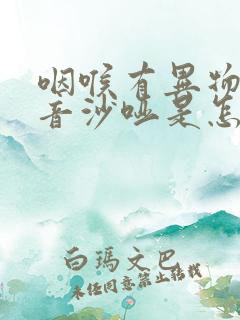 咽喉有异物
音沙哑是怎
白玛文巴
未经同意禁止转载